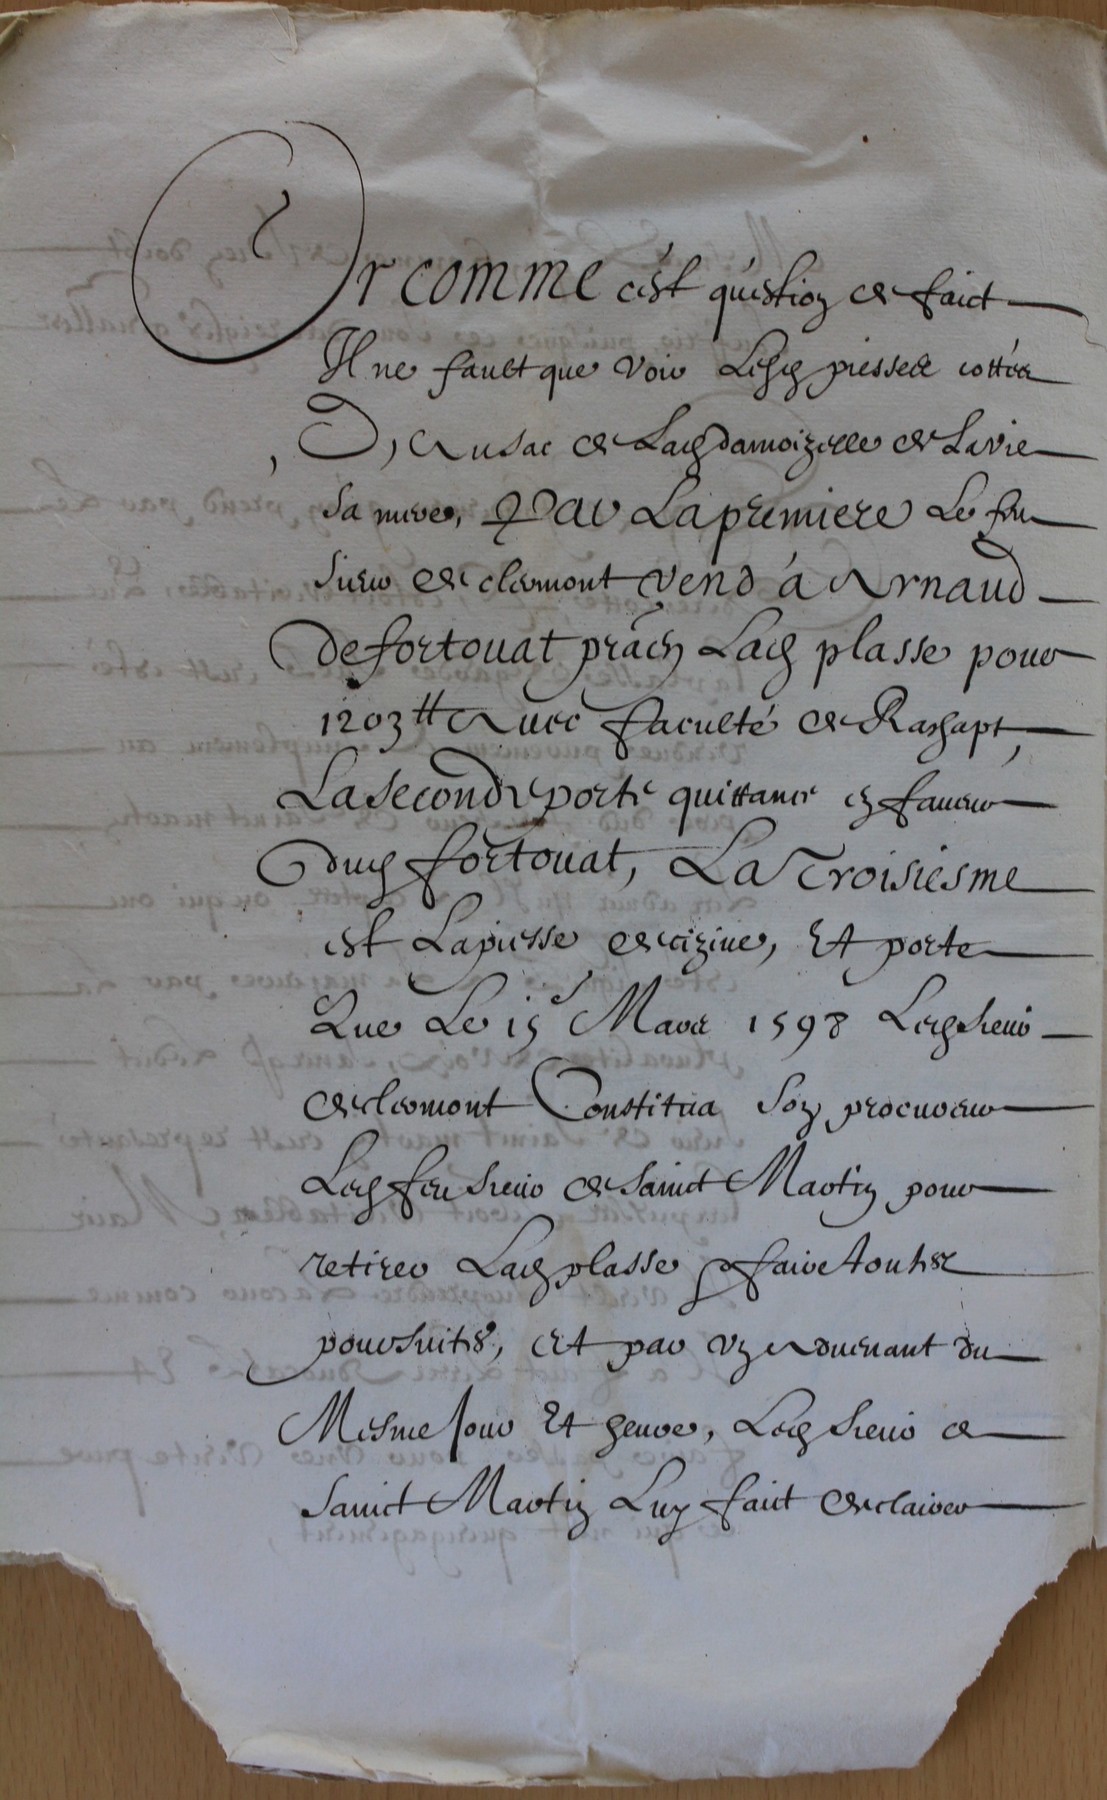 Or comme c'est question de faict
Il ne fault que voir lesd piesses cottées
D, au sac de lad damoizelle de Lavie
sa mere, Par La premiere Le feu
sieur de clermont vend à Arnaud
de fortouat lad plasse pour
1203 tt avec faculté de Rachapt,
La seconde porte quittance en faveur
dud fortouat, La Troisiesme
est La piesse decizive, Et porte
Que Le 15e Mars 1598 Led sieur
de clermont Constitua son procureur
Led feu sieur de sainct Martin pour
retirer Lad plasse faire toutes
poursuites, Et par un advenant du
Mesme jour Et heure, Led sieur de
sainct Martin Luy faict declairer